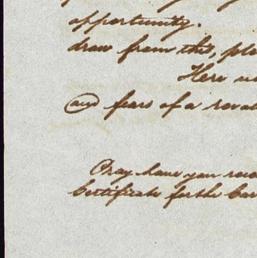 opportunity.
draw from this, ple
Here
and fears of a
Pray have you
Certificate for the